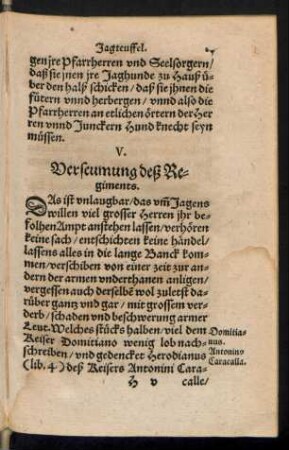 Jagteuffel.
gen jre Pfarrherren vnd Seelsorgern/
daß sie jnen jre Jaghunde zu Hauß ü-
ber den halß schicken/ daß sie jhnen die
fütern vnnd herbergen/ vnnd also die
Pfarrherren an etlichen örtern der Her
ren vnnd Junckern Hundknecht seyn
müssen.
V.
Verseumung deß Re-
giments.
DAs ist vnlaugbar/ das vm̃ Jagens
willen viel grosser Herren jhr be-
folhen Ampt anstehen lassen/ verhören
keine sach/ entschichten keine händel/
lassens alles in die lange Banck kom-
men/ verschiben von einer zeit zur an-
dern der armen vnderthanen anligen/
vergessen auch derselbẽ wol zuletst da-
rüber gantz vnd gar/ mit grossem ver-
derb/ schaden vnd beschwerung armer
Leut. Welches stücks halben/ viel dem
Keiser Domitiano wenig lob nach-
schreiben/ vnd gedencket Herodianus
(lib. 4.) deß Keisers Antonini Cara-
Domitia-
nus.
Antoninꝰ
Caracalla.
H v
calle/